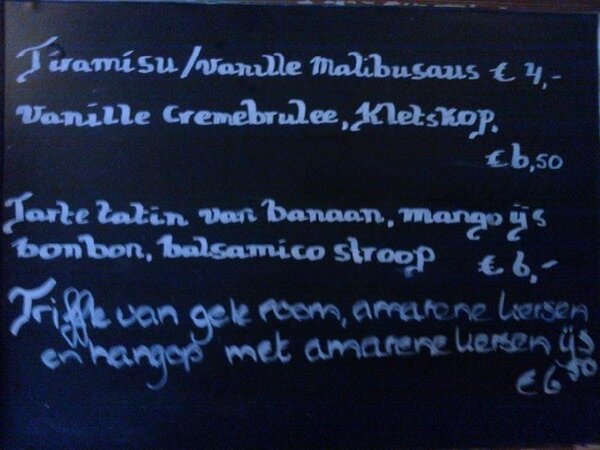 Tiramisu/vanille Malibusaus € 4,-
Vanille Cremebrulee, Kletskop.
€ 6,50
Tarte tatin van banaan, mango ijs
bonbon, balsamico stroop € 6,-
Triffle van gele room, amarene kersen
en hangop met amarene kersen ijs
€ 6 50